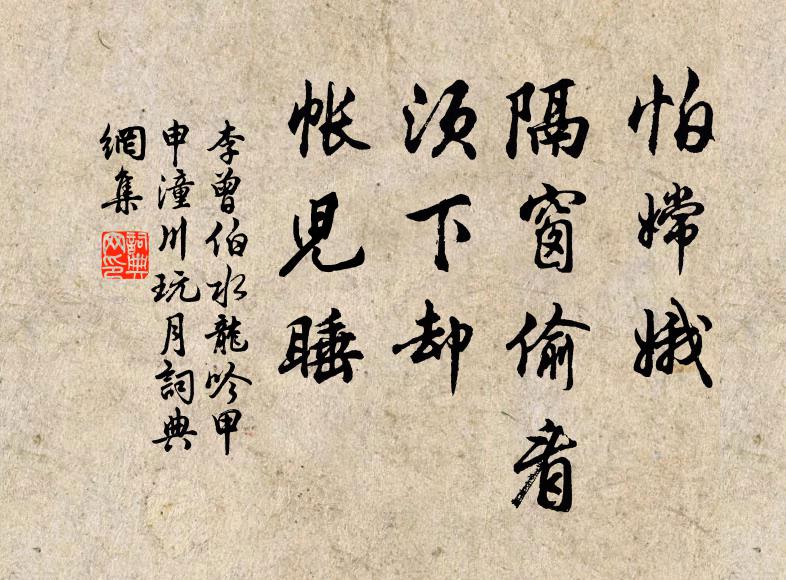 怕嫦娥
隔窗偷看
須下却
帐兒睡
李曾伯水龍吟甲
申潼川玩月詞典
網集
詞典
网印